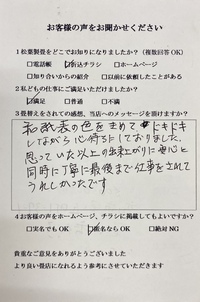 お客様の声をお聞かせください
1 松葉製畳をどこでお知りになりましたか?(複数回答OK)
□電話帳 ☑折込チラシ □ホームページ
□知り合いからの紹介 □以前に依頼したことがある
2 私どもの仕事にご満足いただけましたか?
☑満足 □普通 □不満
3 畳替えをされての感想、当店へのメッセージを頂けますか?
和紙表の色をきめてドキドキ
しながら心待ちしておりました。
思っていた以上の出来上がりに安心と
同時に丁寧に最後まで仕事をされて
うれしかったです
4 お客様の声をホームページ、チラシに掲載してもよいですか?
□実名でもOK ☑匿名ならOK □絶対NG
貴重なご意見をありがとうございました
より良い畳店になれるよう参考にさせていただきます